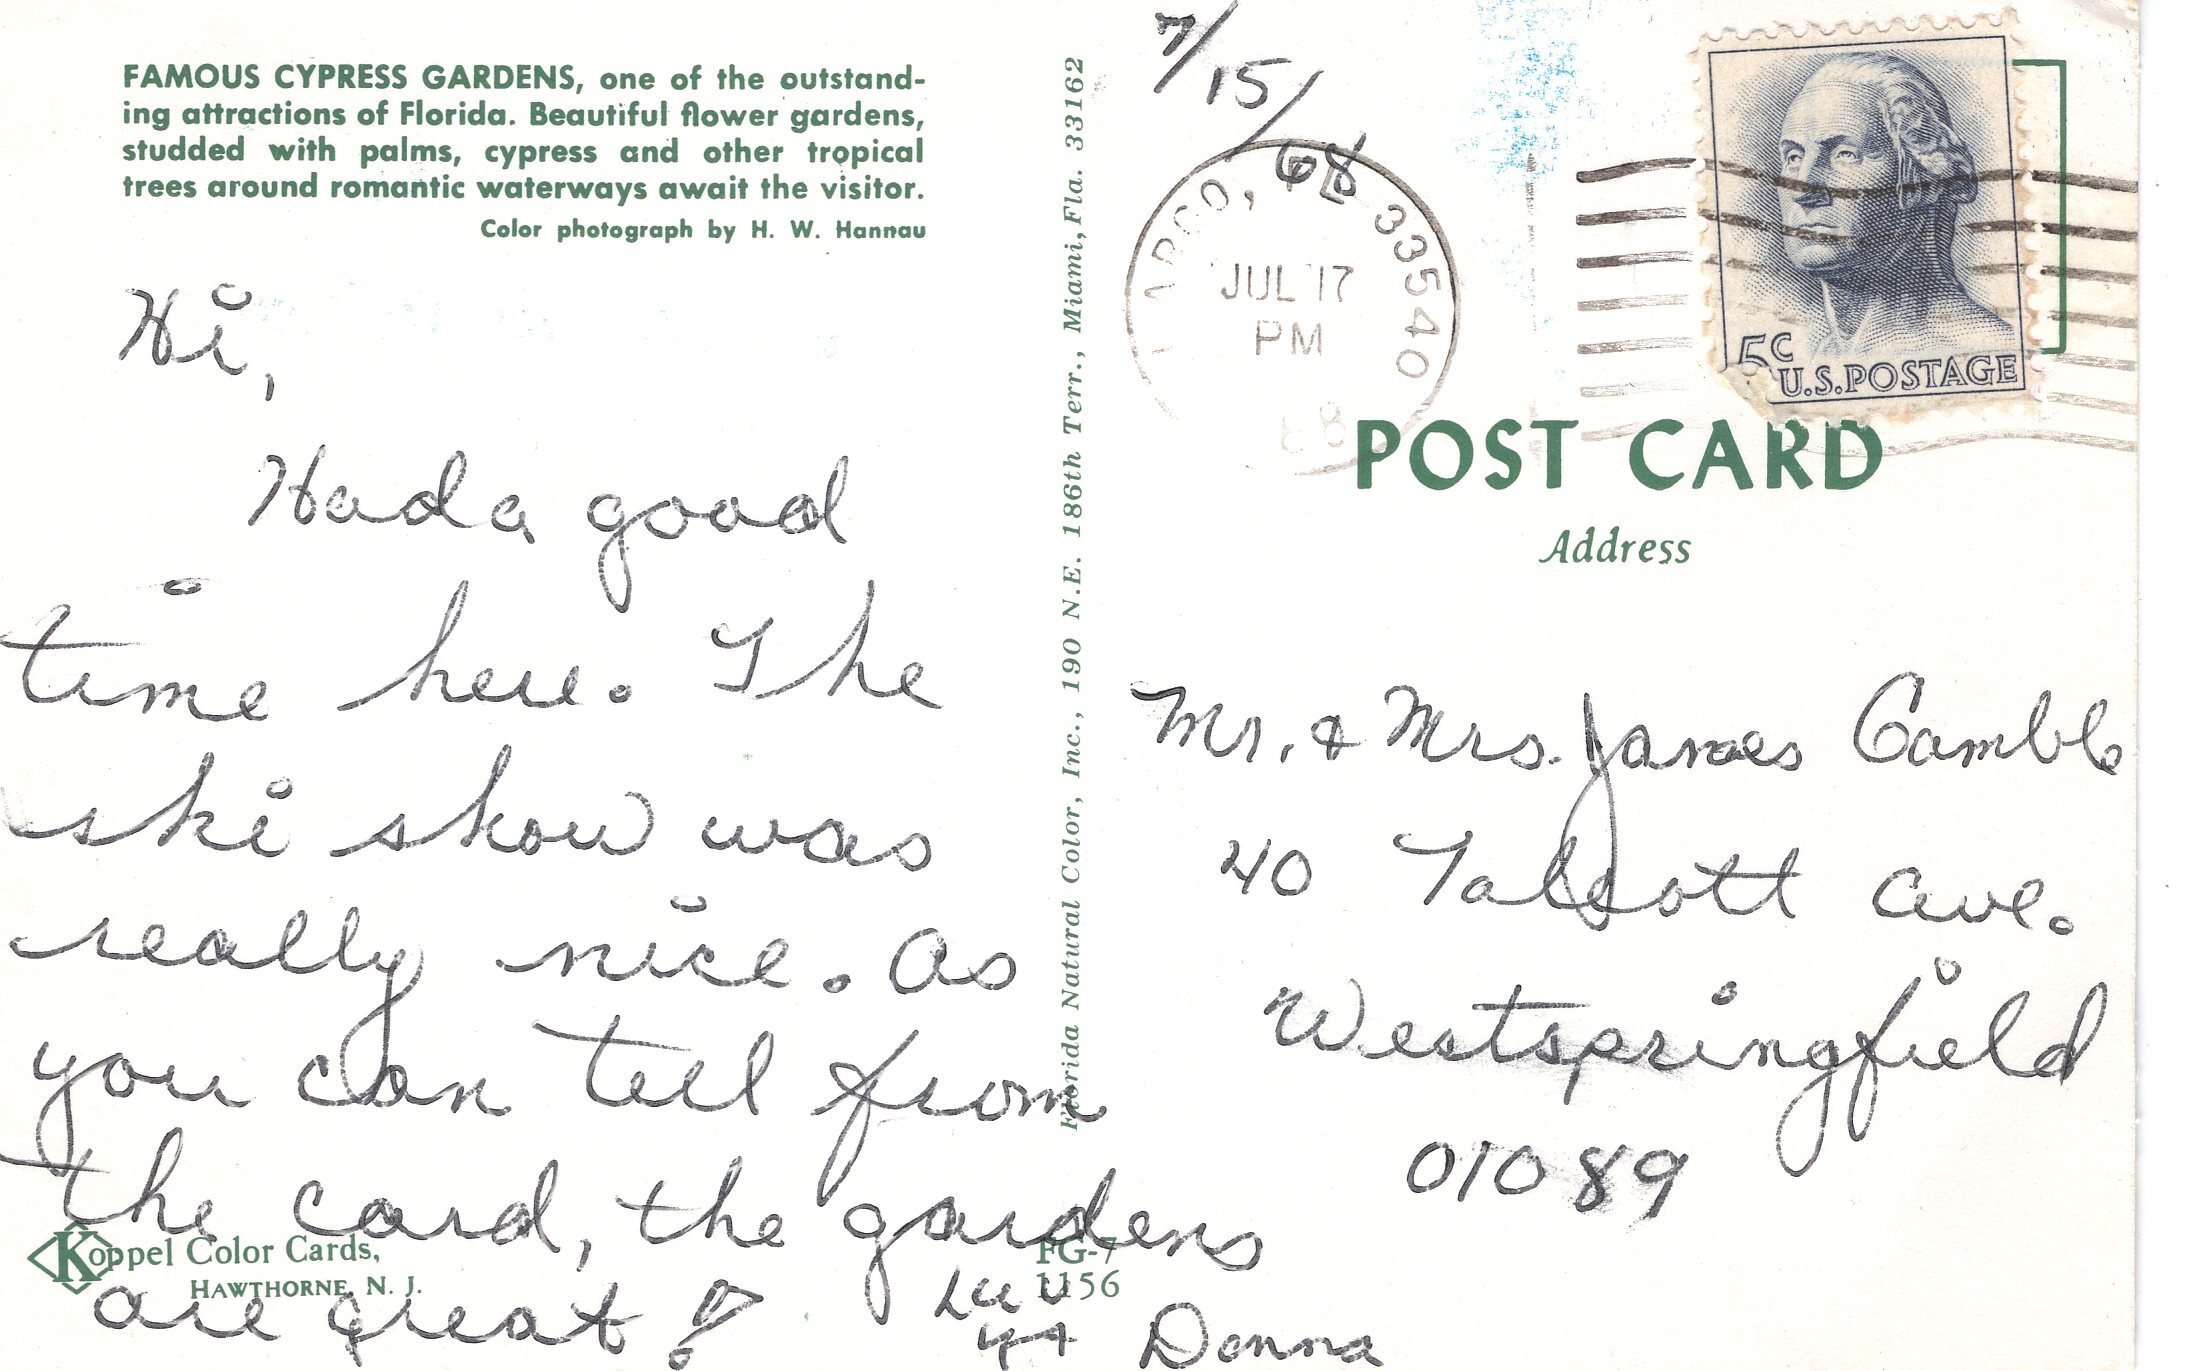 FAMOUS CYPRESS GARDENS, one of the outstand-
ing attractions of Florida. Beautiful flower gardens,
studded with palms, cypress and other tropical
trees around romantic waterways await the visitor.
Color photograph by H. W. Hannau
Hi,
Had a good
time here. The
ski show was
really nice. As
you can tell from
the card, the gardens
are great!
Donna
Koppel Color Cards,
HAWTHORNE, N. J.
FG-7
1156
Florida Natural Color, Inc., 190 N.E. 186th Terr., Miami, Fla. 33162
7/15/68
LARGO, FL 33540
JUL 17
PM
5c
U.S.POSTAGE
POST CARD
Address
Mr. & Mrs. James Gamble
40 Talcott Ave.
Westspringfield
01089